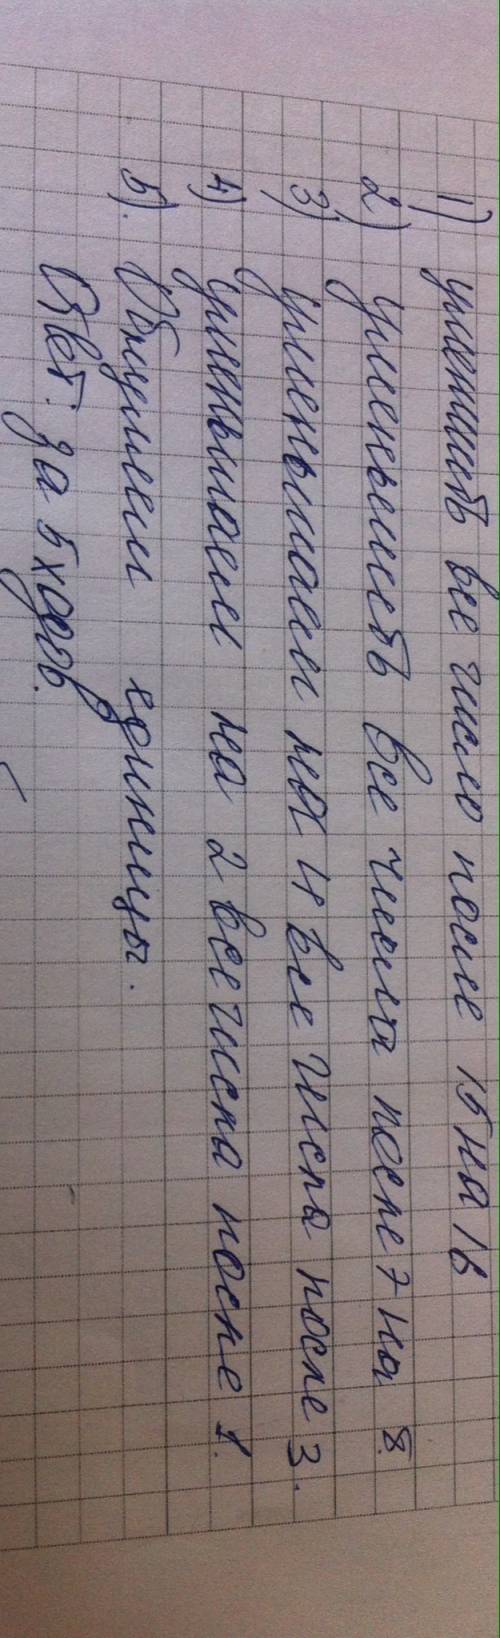 1) уменьшить все число после 15 на 16
2) уменьшить все числа после 7 на 8.
3) уменьшаем на 4 все числа после 3.
4) уменьшаем на 2 все числа после 1.
5). Обнуляем единицы.
Ответ: за 5 ходов.